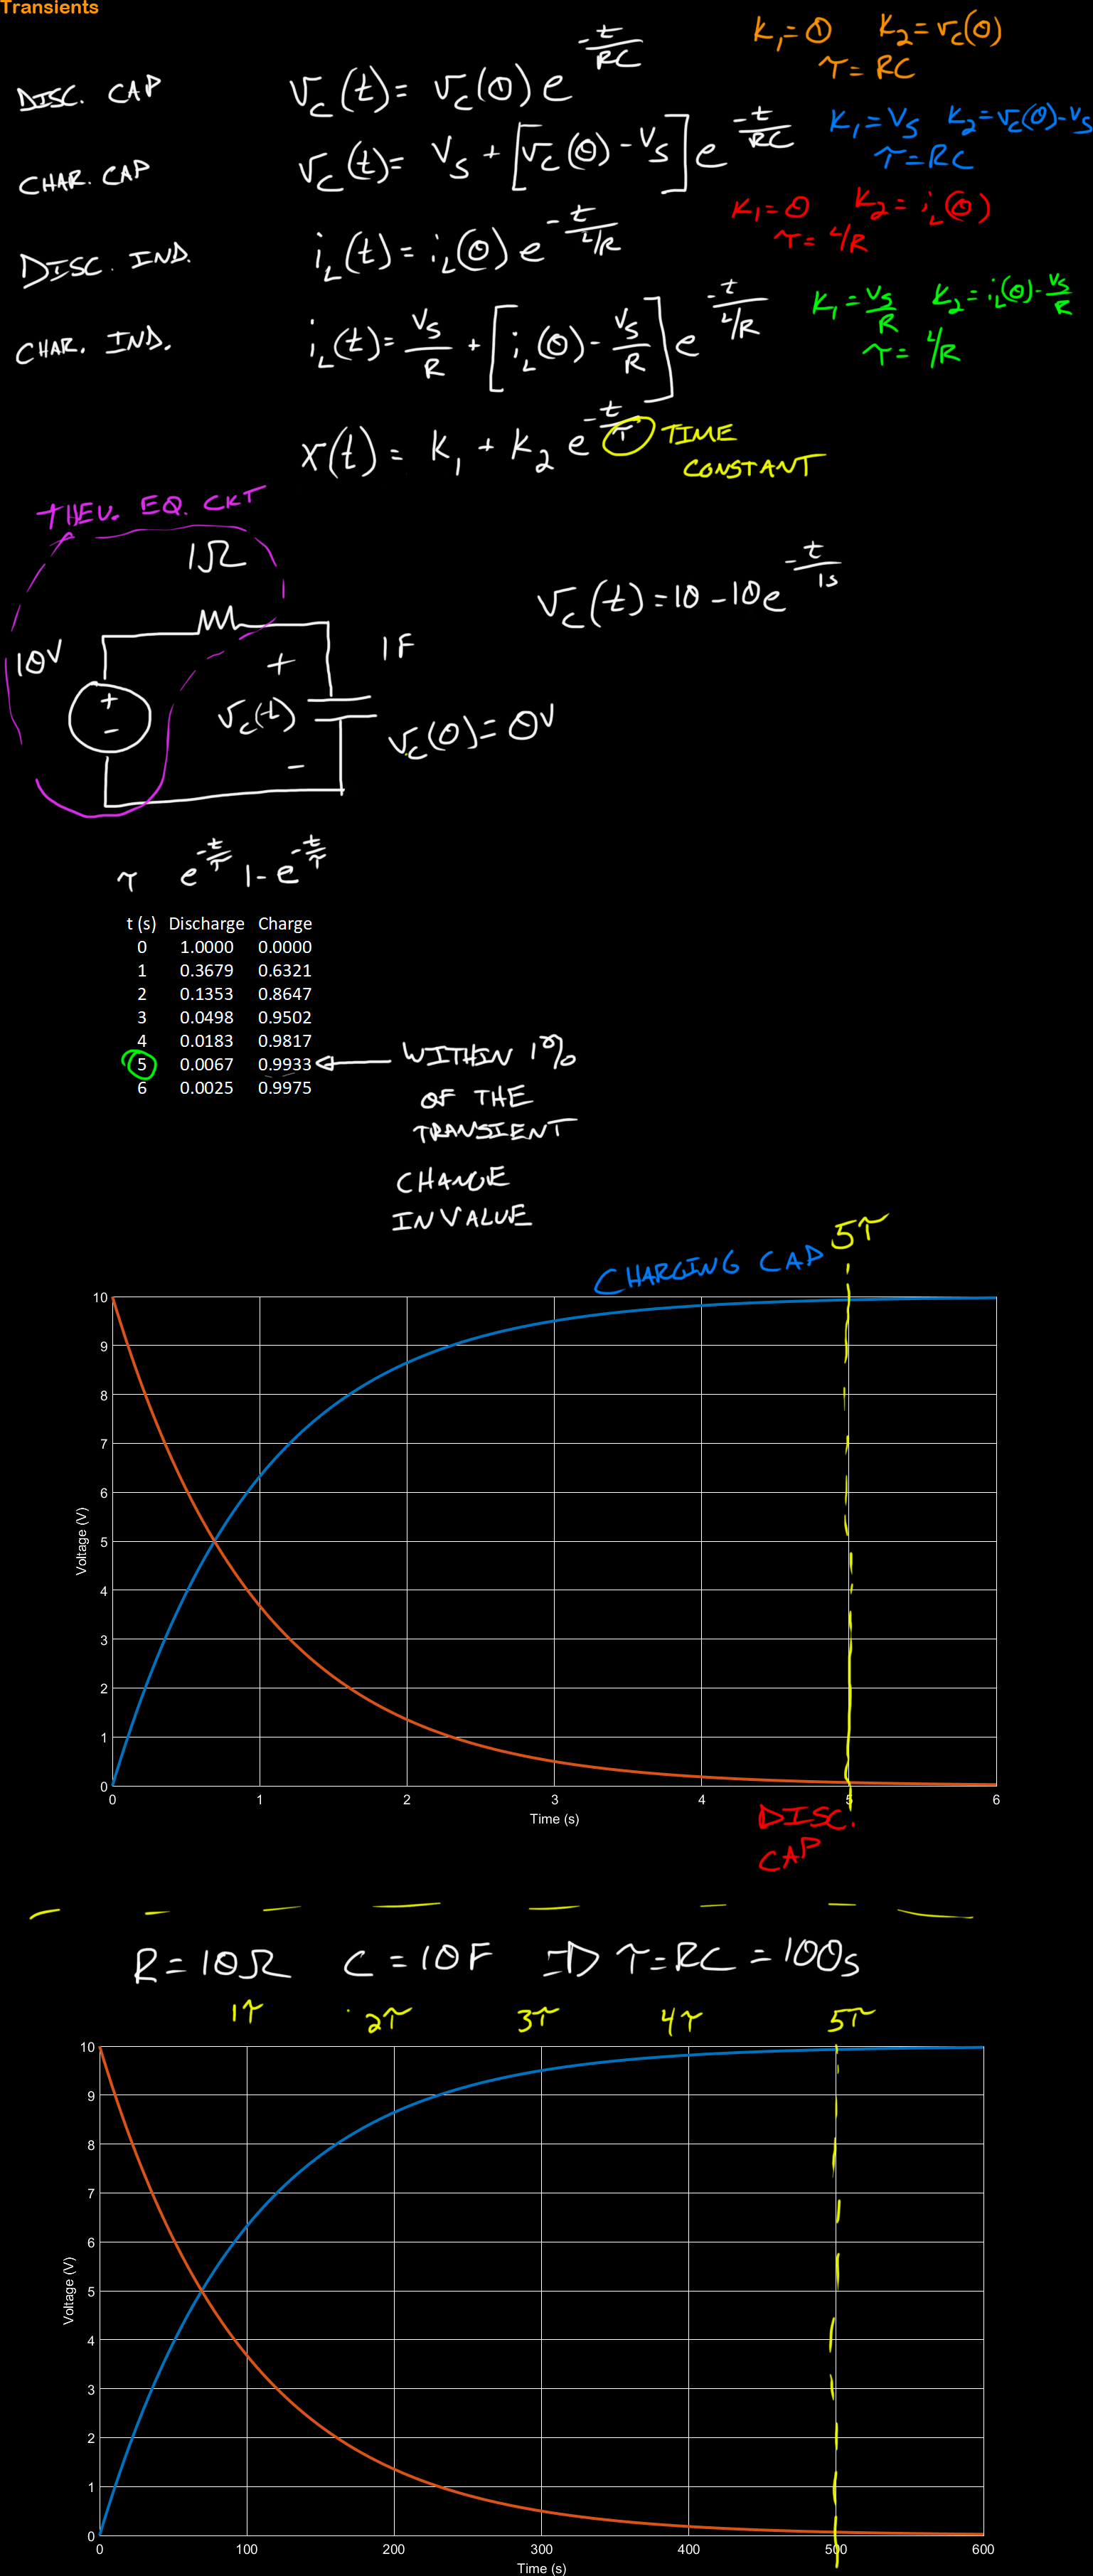 Transients
DISC. CAP v_C(t) = v_C(0) e^(-t/RC) K₁=0 K₂=v_C(0) τ=RC
CHAR. CAP v_C(t) = V_S + [v_C(0) - V_S] e^(-t/RC) K₁=V_S K₂=v_C(0)-V_S τ=RC
DISC. IND. i_L(t) = i_L(0) e^(-t/(L/R)) K₁=0 K₂=i_L(0) τ=L/R
CHAR. IND. i_L(t) = V_S/R + [i_L(0) - V_S/R] e^(-t/(L/R)) K₁=V_S/R K₂=i_L(0)-V_S/R τ=L/R
x(t) = K₁ + K₂ e^(-t/τ) TIME
CONSTANT
THEV. EQ. CKT
1Ω
v_C(t) = 10 - 10e^(-t/1s)
10V + - + v_C(t) - 1F
v_C(0) = 0V
τ e^(-t/τ) 1-e^(-t/τ)
t (s) Discharge Charge
0 1.0000 0.0000
1 0.3679 0.6321
2 0.1353 0.8647
3 0.0498 0.9502
4 0.0183 0.9817
5 0.0067 0.9933
6 0.0025 0.9975
WITHIN 1%
OF THE
TRANSIENT
CHANGE
IN VALUE
CHARGING CAP 5τ
10
9
8
7
6
5
4
3
2
1
0
Voltage (V)
0 1 2 3 4 5 6
Time (s)
DISC.
CAP
R = 10Ω C = 10F ⇒ τ=RC = 100s
1τ 2τ 3τ 4τ 5τ
10
9
8
7
6
5
4
3
2
1
0
Voltage (V)
0 100 200 300 400 500 600
Time (s)